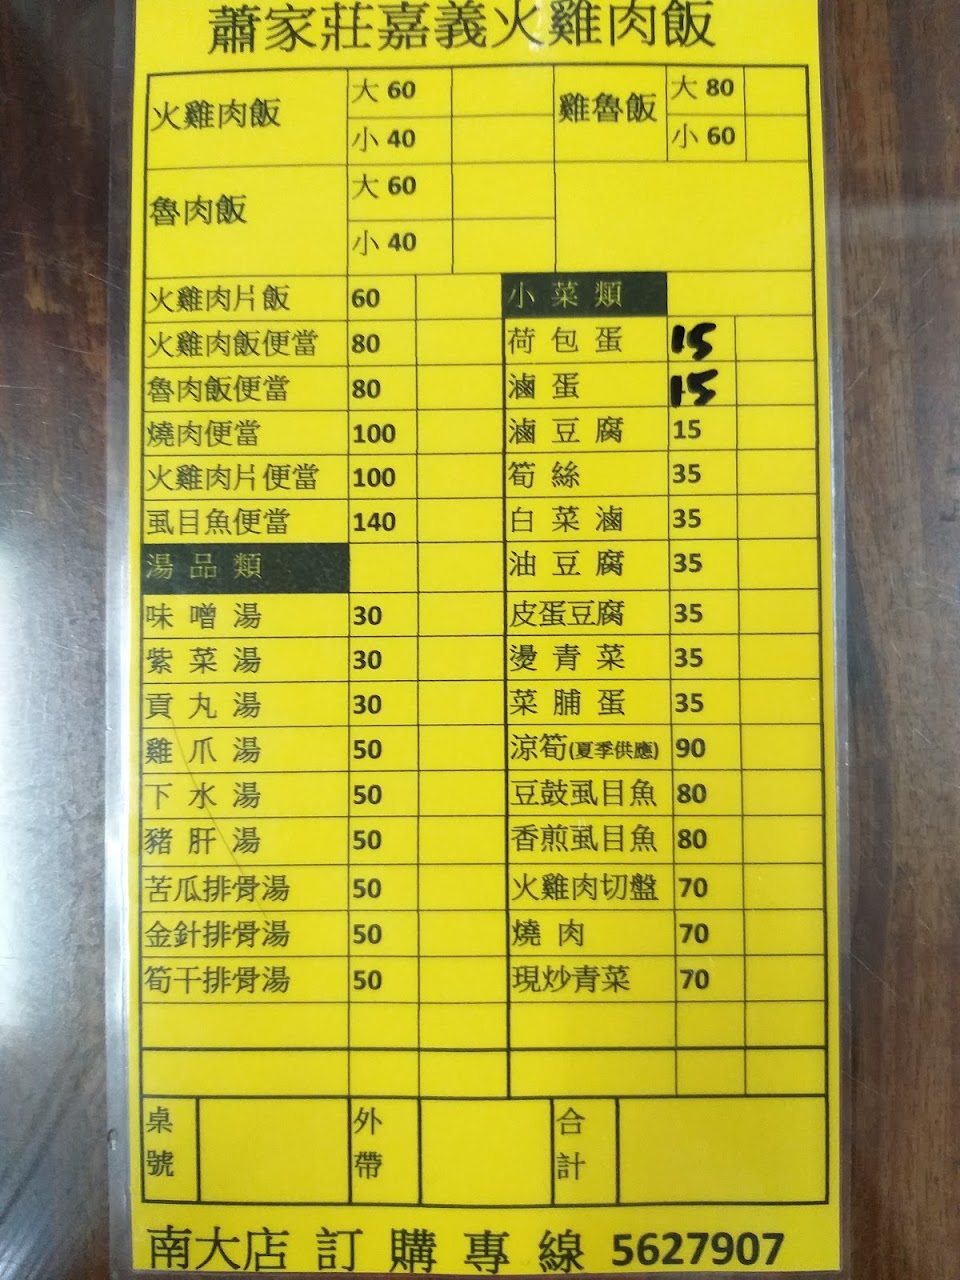 蕭家莊嘉義火雞肉飯
火雞肉飯 大 60 雞魯飯 大 80
小 40 小 60
魯肉飯 大 60
小 40
火雞肉片飯 60 小菜類
火雞肉飯便當 80 荷包蛋 15
魯肉飯便當 80 滷蛋 15
燒肉便當 100 滷豆腐 15
火雞肉片便當 100 筍絲 35
虱目魚便當 140 白菜滷 35
湯品類 油豆腐 35
味噌湯 30 皮蛋豆腐 35
紫菜湯 30 燙青菜 35
貢丸湯 30 菜脯蛋 35
雞爪湯 50 涼筍(夏季供應) 90
下水湯 50 豆鼓虱目魚 80
豬肝湯 50 香煎虱目魚 80
苦瓜排骨湯 50 火雞肉切盤 70
金針排骨湯 50 燒肉 70
筍干排骨湯 50 現炒青菜 70
桌號 外帶 合計
南大店 訂購專線 5627907